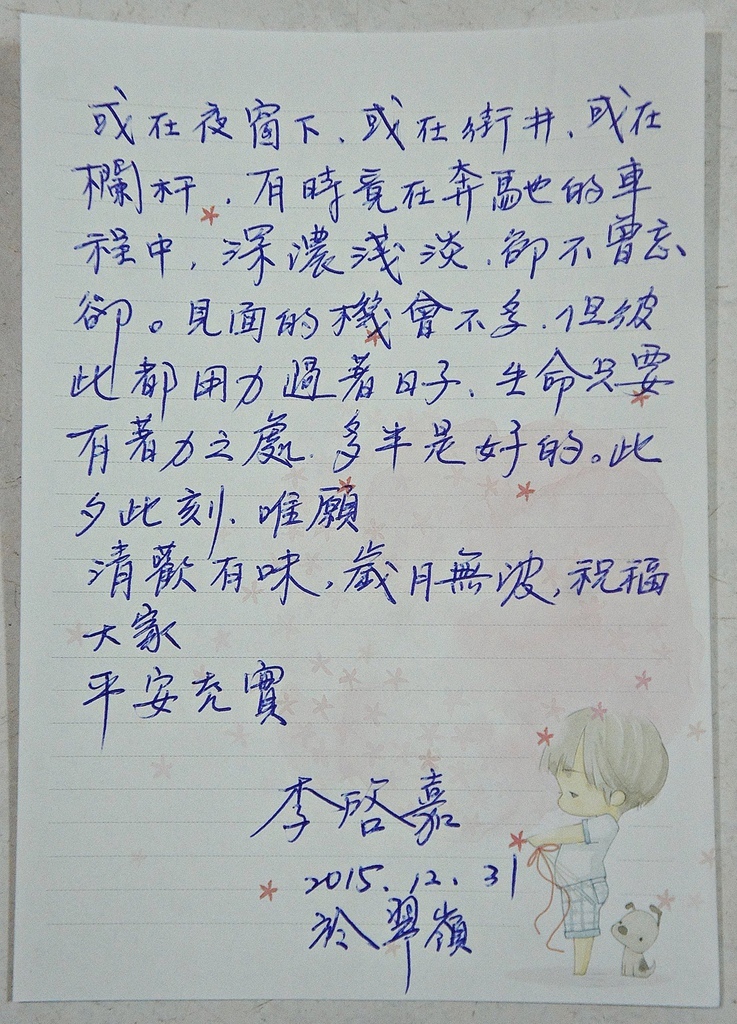 或在夜窗下、或在街井、或在
欄杆，有時竟在奔馳的車
程中，深濃淺淡，卻不曾忘
卻。見面的機會不多，但彼
此都用力過著日子，生命只要
有著力之處，多半是好的。此
夕此刻，唯願
清歡有味，歲月無波，祝福
大家
平安充實
李啓嘉
2015.12.31
於翠嶺